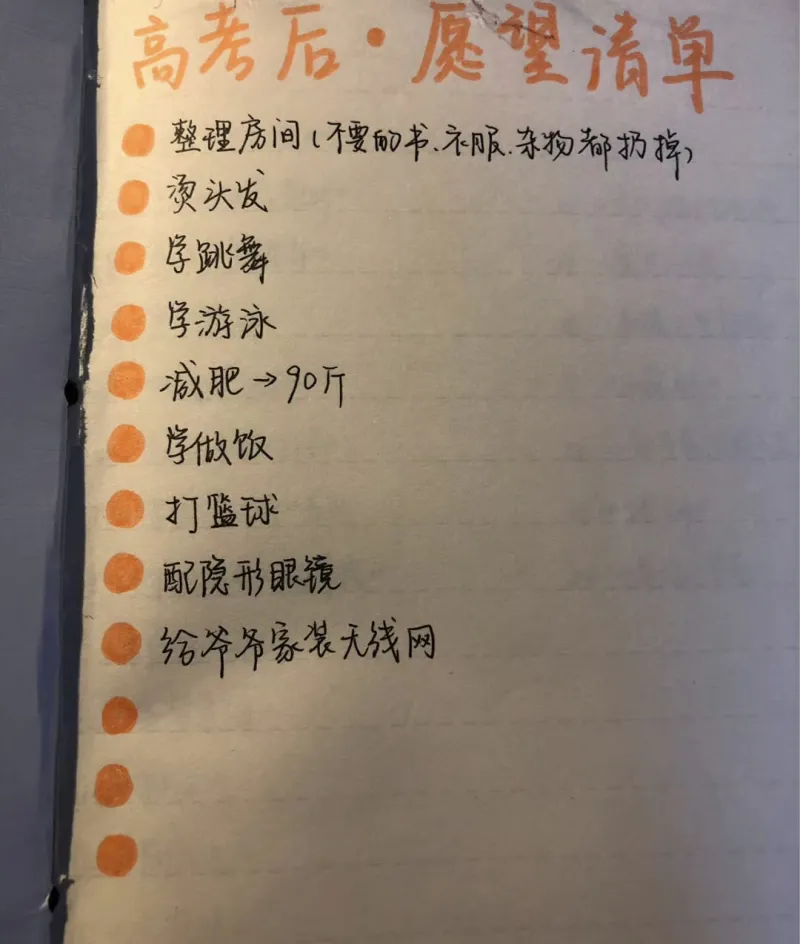 高考后·愿望清单
整理房间(不要的书、衣服、杂物都扔掉)
烫头发
学跳舞
学游泳
减肥→90斤
学做饭
打篮球
配隐形眼镜
给爷爷家装无线网